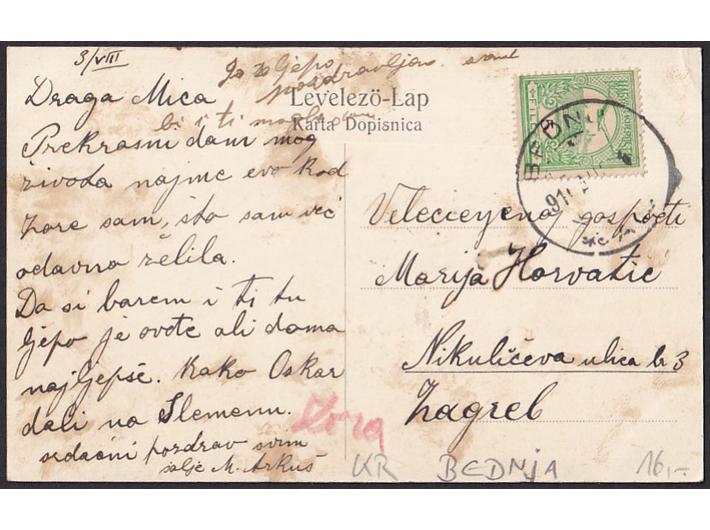 3/VIII
Ja Vas lijepo pozdravljam
Levelező-Lap
Karta Dopisnica
Draga Mica
bi i ti mogla doći
Prekrasni dani mog
života najme evo kod
Zore sam, što sam već
odavno želila.
Da si barem i ti tu
ljepo je ovdje ali doma
najljepše. Kako Oskar
dali na Slemenu.
srdačni pozdrav svim
šalje M. Arkuš
Zora
Velecijenjena gospođi
Marija Horvatić
Nikulićeva ulica br 3
Zagreb
KR BEDNJA 16,-